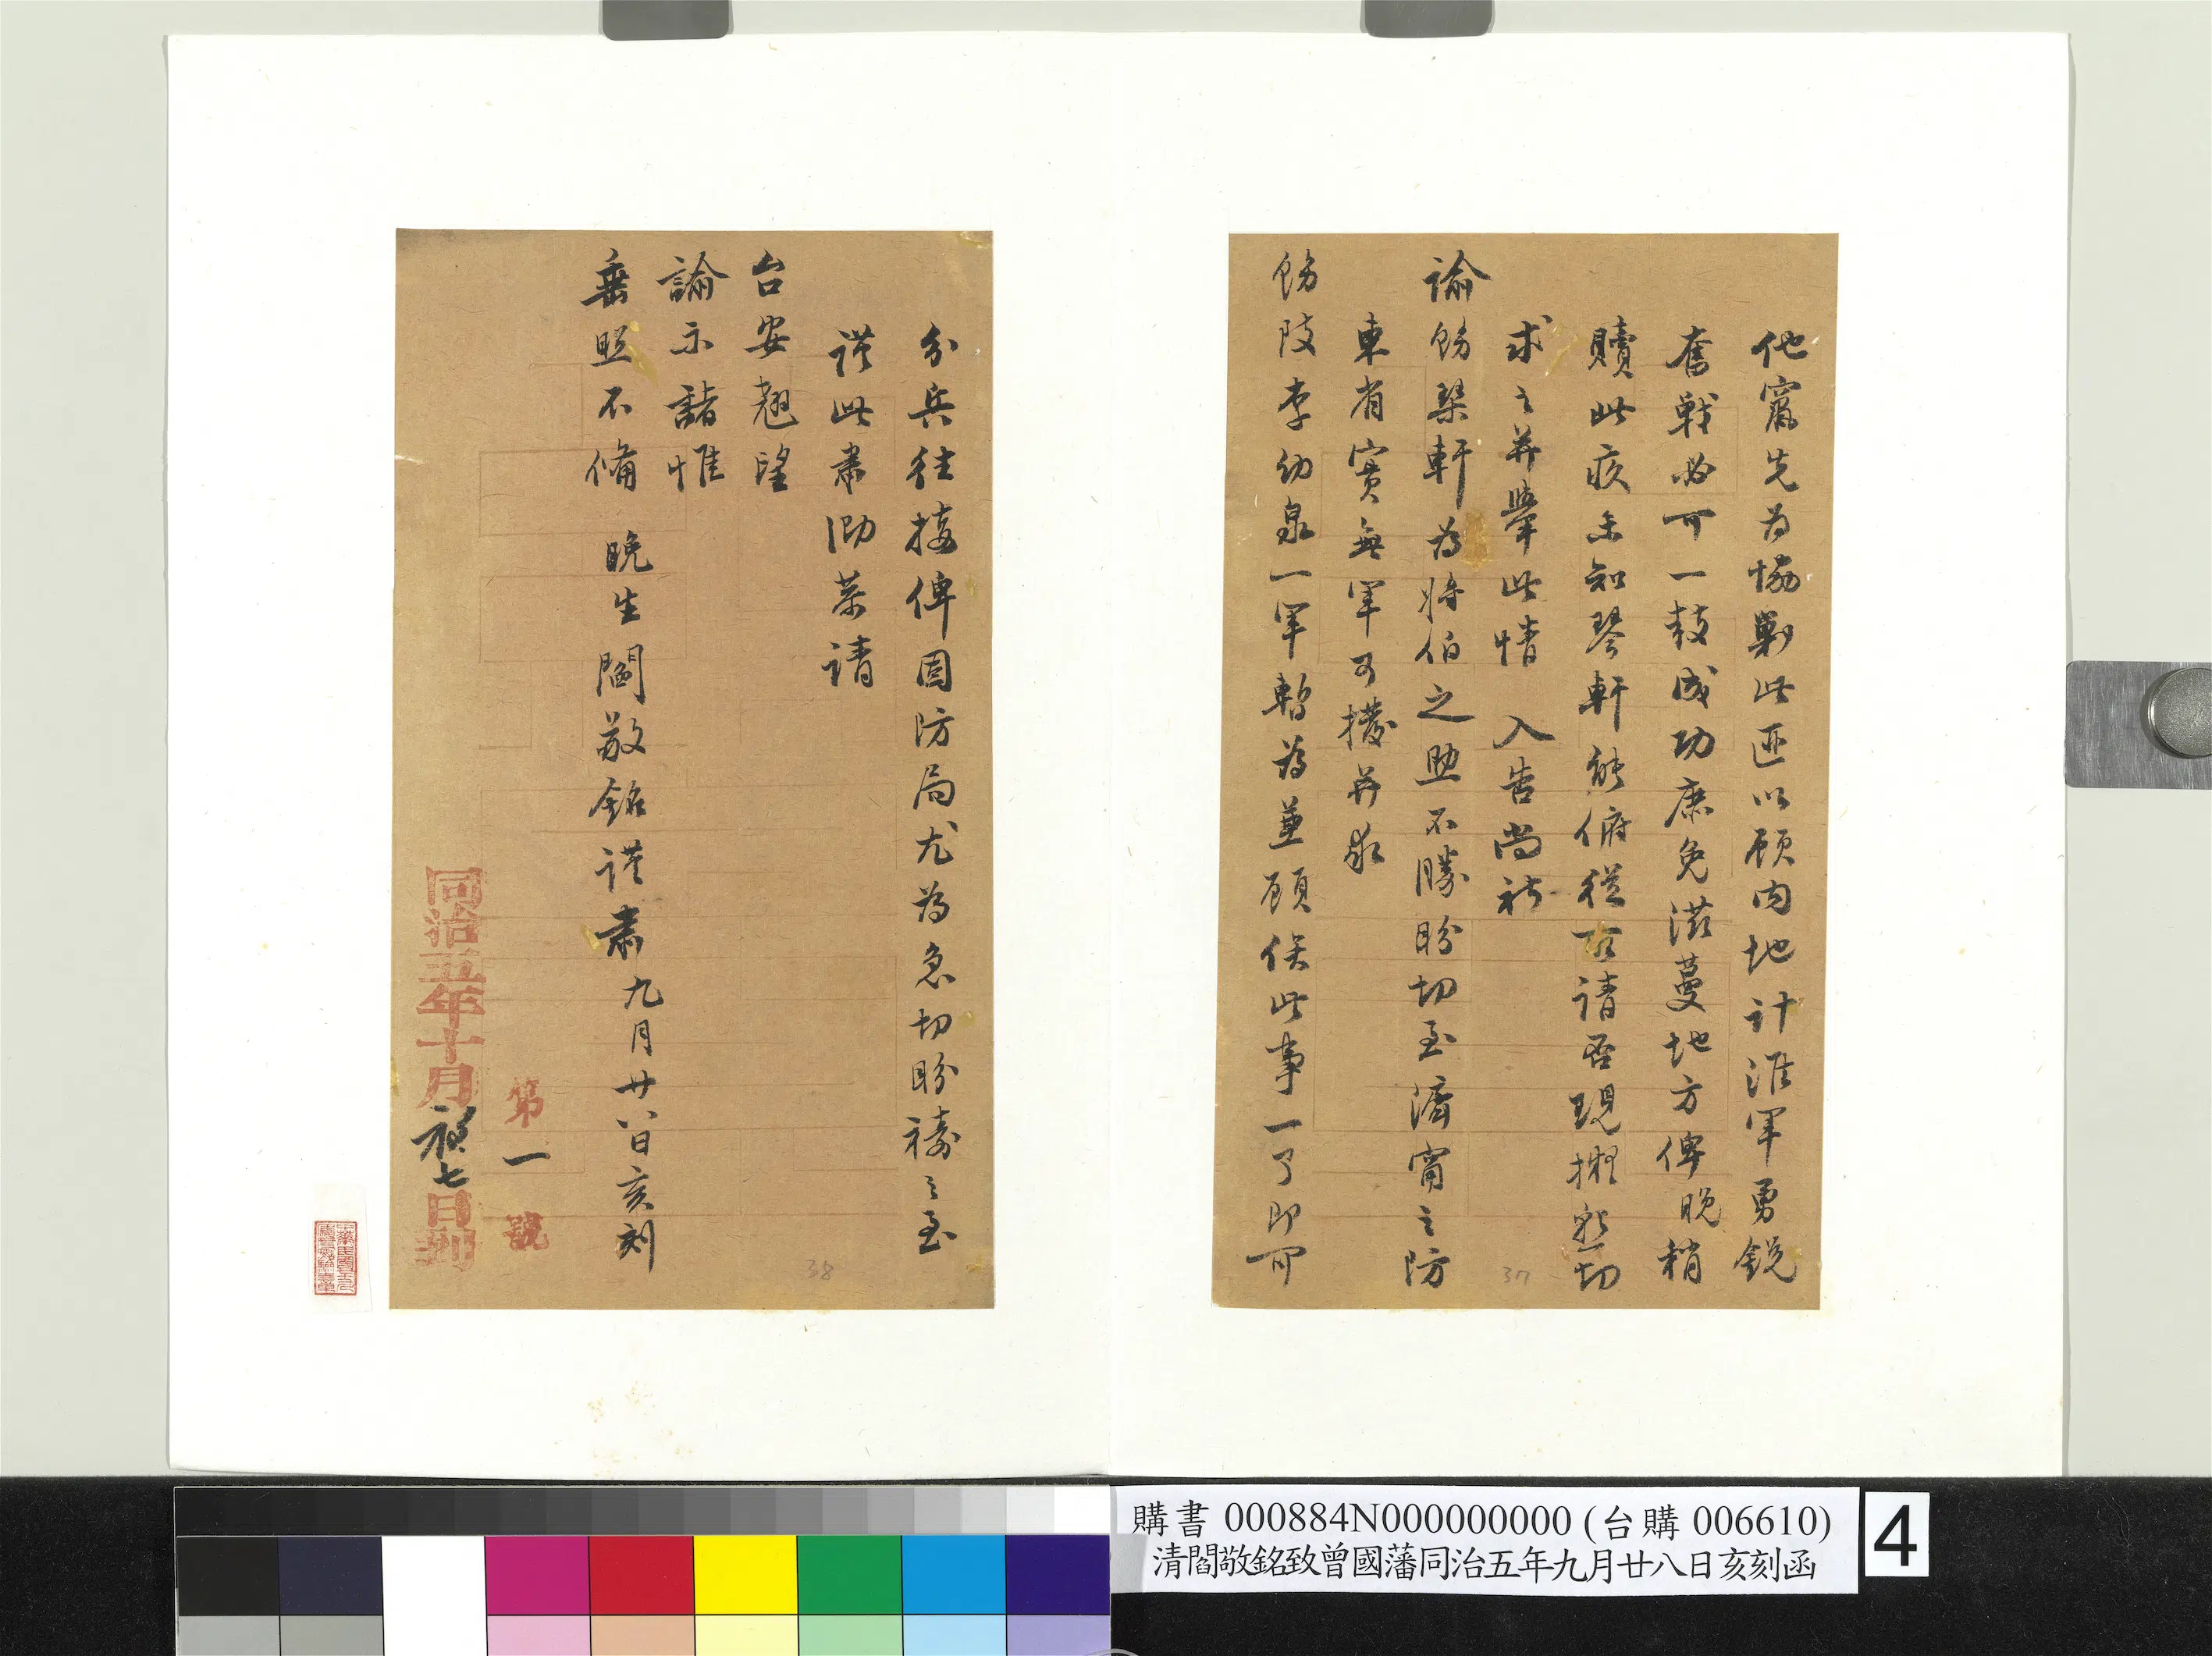 他竄先為協剿此匪以顧內地計淮軍勇銳
奮戰必可一鼓成功庶免滋蔓地方俾晚稍
贖此疚未知琴軒能俯從所請否現擬懇切
求之並舉此情 入告尚祈
諭飭琴軒為將伯之助不勝盼切至濟甯之防
東省實無軍可撥并求
飭改李幼泉一軍暫為兼顧俟此事一了即可
分兵往接俾固防局尤為急切盼禱之至
謹此肅泐恭請
台安翹望
諭示諸惟
垂照不備 晚生閻敬銘謹肅 九月廿八日亥刻
第一號
同治五年十月初七日到
38
37
購書 000884N000000000 (台購 006610)
清閻敬銘致曾國藩同治五年九月廿八日亥刻函
4